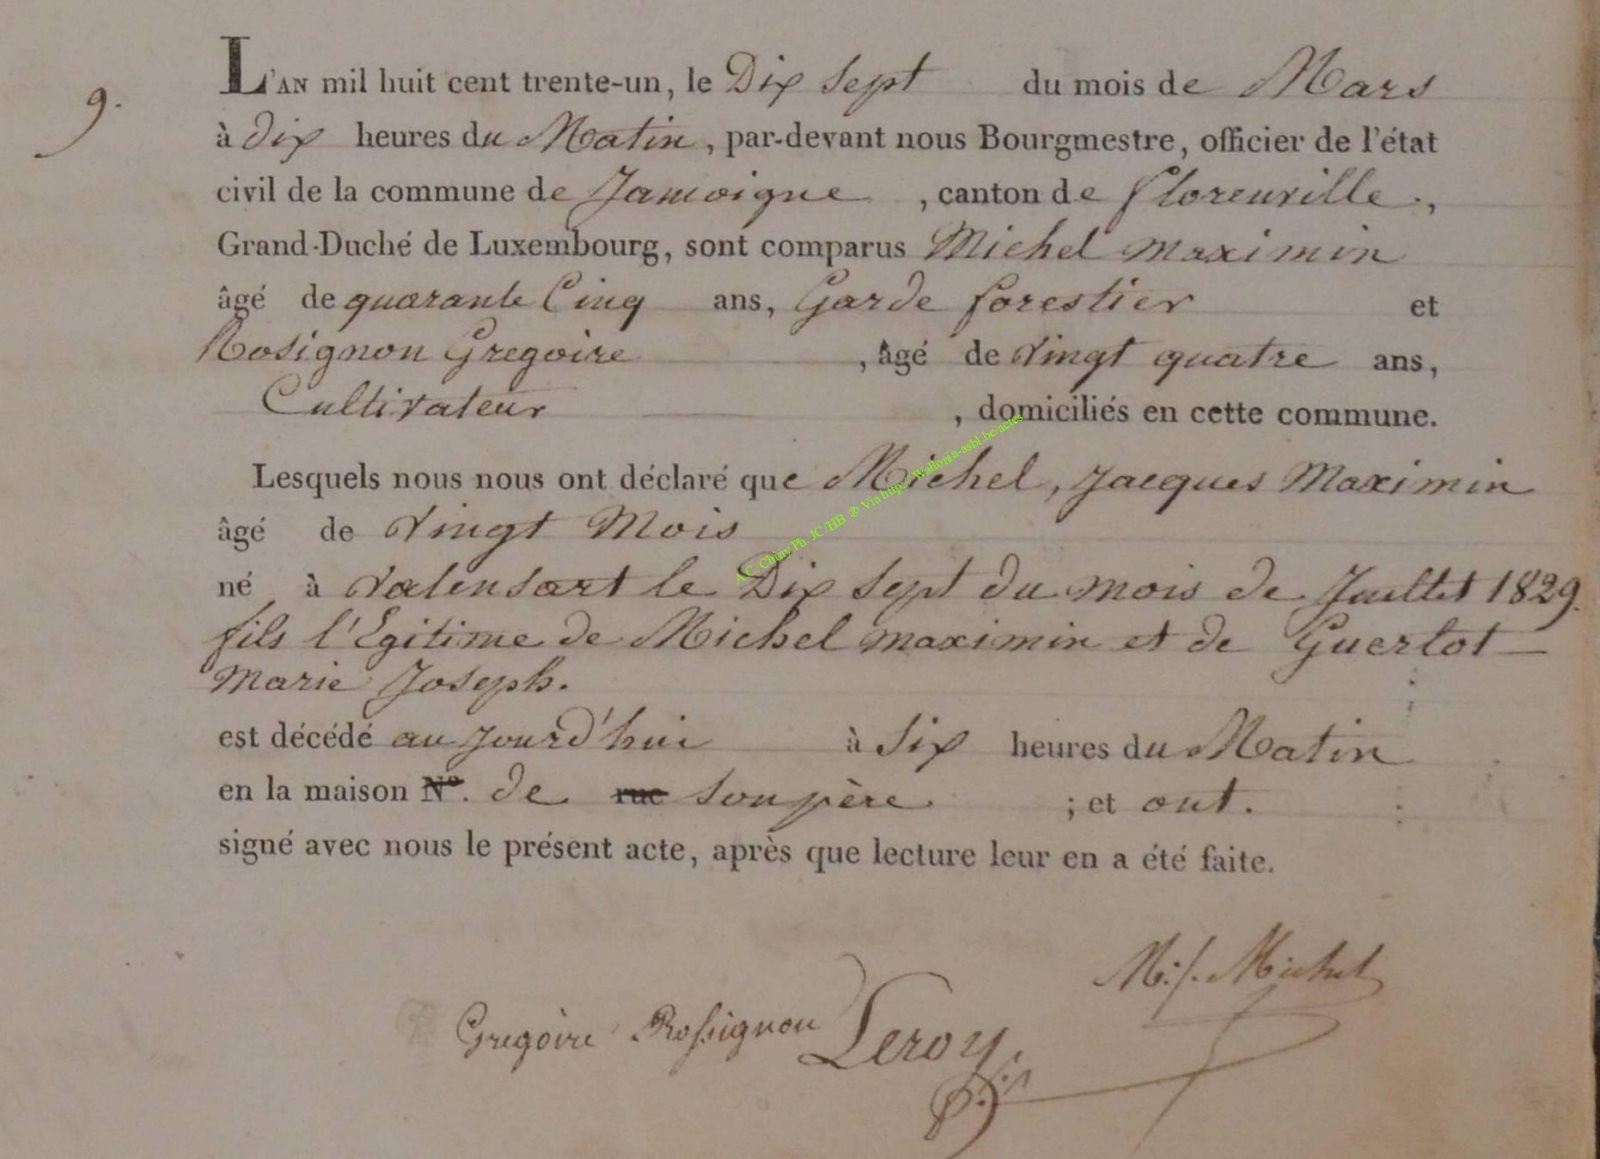 9.
L'AN mil huit cent trente-un, le Dix sept du mois de Mars
à dix heures du Matin, par-devant nous Bourgmestre, officier de l'état
civil de la commune de Jamoigne, canton de florenville,
Grand-Duché de Luxembourg, sont comparus Michel Maximin
âgé de quarante Cinq ans, Garde forestier et
Rosignon Gregoire, âgé de vingt quatre ans,
Cultivateur, domiciliés en cette commune.
Lesquels nous nous ont déclaré que Michel, Jacques Maximin
âgé de vingt Mois
né à valensart le Dix sept du mois de Juillet 1829.
fils l'Egitime de Michel maximin et de Guerlot
Marie Joseph.
est décédé aujourd'hui à Six heures du Matin
en la maison N°. de rue son père ; et ont.
signé avec nous le présent acte, après que lecture leur en a été faite.
M:/. Michel
Gregoire Rossignon Leroy
A.C. Chiny Ph. JC HB ® Via http://wallonia-asbl.be/actes